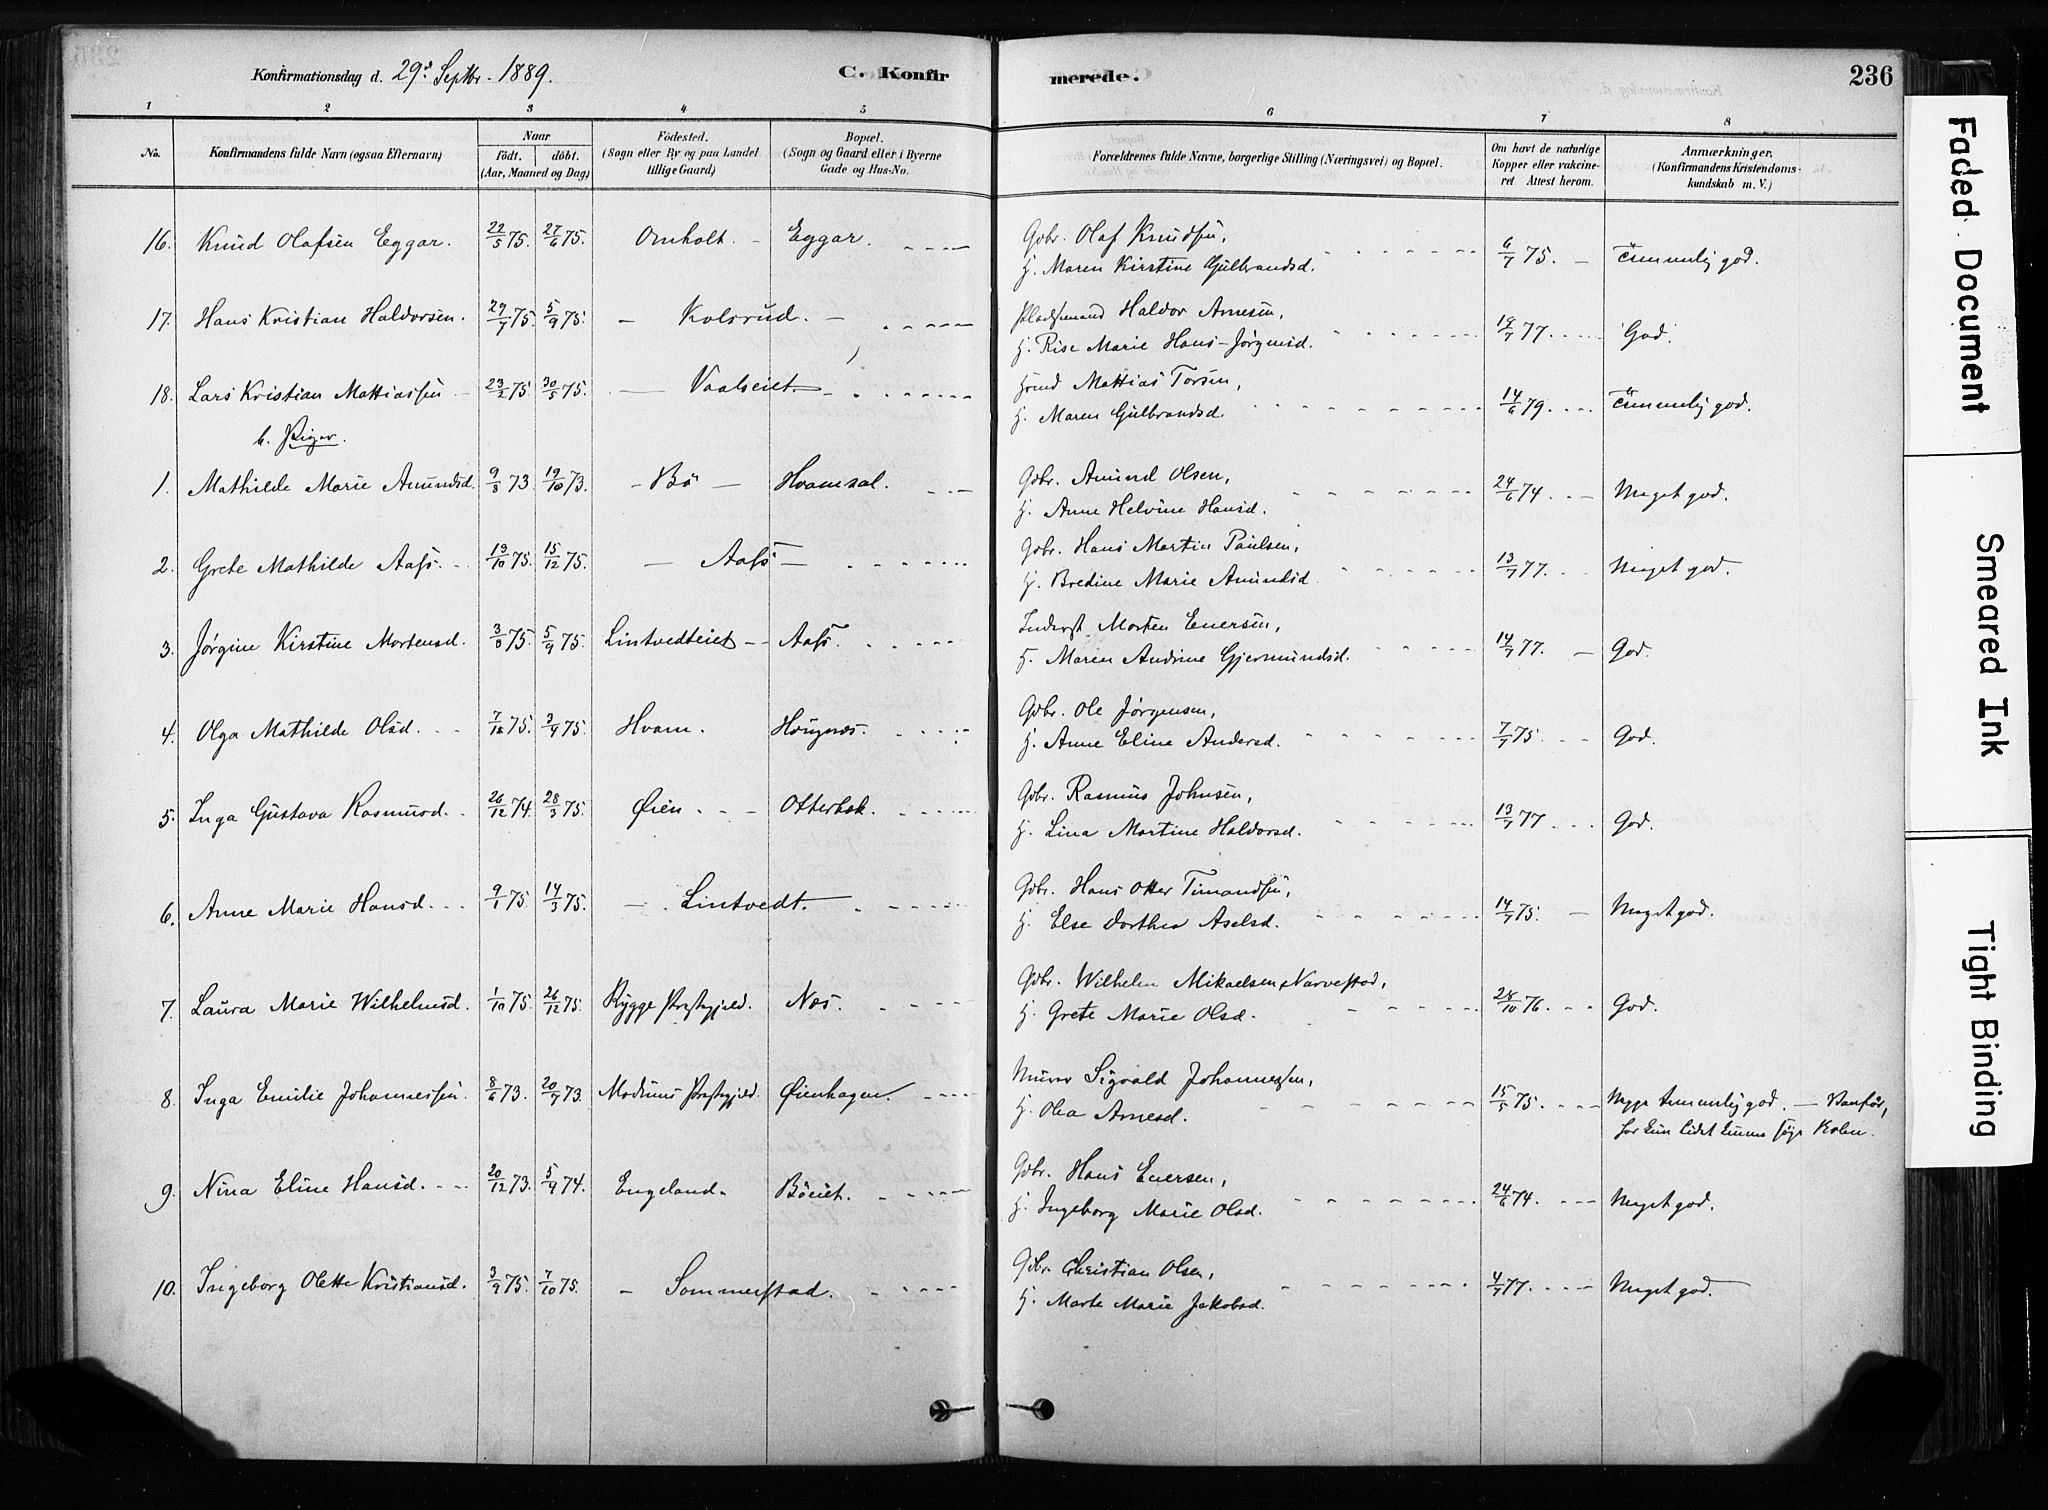 Konfirmationsdag d. 29d Septbr. 1889.
C. Konfirmerede.
236
1 2 3 4 5 6 7 8
No.
Konfirmandens fulde Navn (ogsaa Efternavn)
Naar
födt. döbt.
(Aar, Maaned og Dag)
Födested.
(Sogn eller By og paa Landet
tillige Gaard)
Bopæl.
(Sogn og Gaard eller i Byerne
Gade og Hus-No.
Forældrenes fulde Navne, borgerlige Stilling (Næringsvei) og Bopæl.
Om havt de naturlige
Kopper eller vakcine-
ret Attest herom.
Anmærkninger.
(Konfirmandens Kristendoms-
kundskab m. V.)
16. Knud Olafsen Eggar. 22/5 75. 27/6 75. Omholt. - Eggar. Gbr. Olaf Knudsen, 6/7 75. - Temmelig god.
H. Maren Kirstine Gulbrandsd.
17. Hans Kristian Haldorsen. 29/7 75. 5/9 75. - Kolsrud. - Pladsemand Haldor Arnesen, 19/7 77. God.
H. Rise Marie Hans-Jørgensd.
18. Lars Kristian Mattiassen 23/2 75. 30/5 75. - Vaalseiet. - Mattias Torsen, 14/6 79. Temmelig god.
H. Maren Gulbrandsd.
b. Piger.
1. Mathilde Marie Amundsd. 9/8 73. 19/10 73. - Bö - Hvamsal. Gbr. Amund Olsen, 24/6 74. - Meget god.
H. Anne Helvine Hansd.
2. Grete Mathilde Aass. 19/10 75. 15/12 75. - Aass - Gbr. Hans Martin Paulsen, 13/7 77. Meget god.
H. Bredine Marie Amundsd.
3. Jørgine Kirstine Mortensd. 3/8 75. 5/9 75. Lintvedteiet - Aass. Inderst Morten Enersen, 14/7 77. - God.
H. Maren Andrine Gjermundsd.
4. Olga Mathilde Olsd. 75. 3/9 75. Hvam. Haugnæs. Gbr. Ole Jørgensen, 7/7 75. God.
H. Anne Eline Andersd.
5. Inga Gustava Rasmusd. 26/12 74. 28/3 75. Øien - Otterbek. Gbr. Rasmus Johnsen, 13/7 77 God.
H. Lina Martine Haldorsd.
6. Anne Marie Hansd. 9/1 75. 14/3 75. - Lintvedt. Gbr. Hans Otter Timandsen, 14/7 75. - Meget god.
H. Else Dorthea Aselsd.
7. Laura Marie Wilhelmsd. 1/10 75. 26/12 75. Rygge Præstegjeld. Næs. Gbr. Wilhelm Mikaelsen Narvestad, 28/10 76. God.
H. Grete Marie Olsd.
8. Inga Emilie Johannessen 8/6 73. 20/7 73. Modums Præstegjeld. Øienhagen. Murer Sigvald Johannessen, 15/5 75. temmelig god. - Vanför,
H. Olea Arnesd. har kun lidet kunne søge Skolen.
9. Nina Eline Hansd. 20/12 73. 5/4 74. Engeland. Böeiet. Gbr. Hans Enersen, 24/6 74. Meget god.
H. Ingeborg Marie Olsd.
10. Ingeborg Olette Kristiansd. 3/9 75. 7/10 75. - Sommerstad. Gbr. Christian Olsen, 4/7 77. Meget god.
H. Marte Marie Jakobsd.
Faded Document
Smeared Ink
Tight Binding